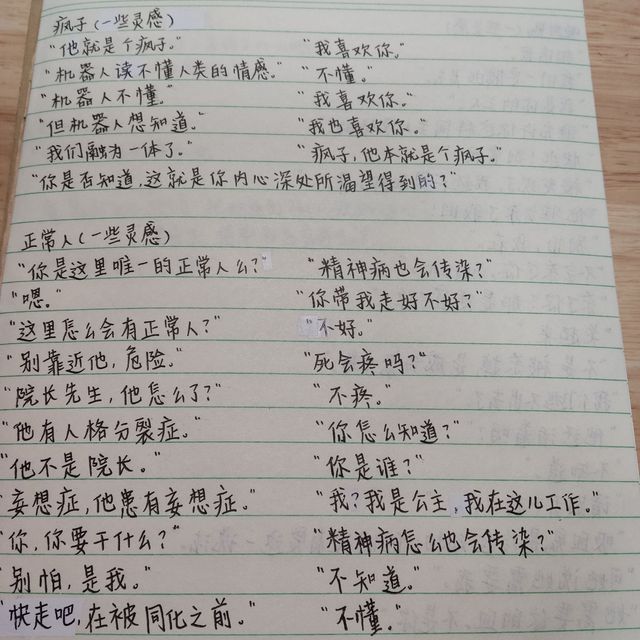 疯子(一些灵感)
"他就是个疯子。"
"机器人读不懂人类的情感。"
"机器人不懂。"
"但机器人想知道。"
"我们融为一体了。"
"我喜欢你。"
"不懂。"
"我喜欢你。"
"我也喜欢你。"
"疯子,他本就是个疯子。"
"你是否知道,这就是你内心深处所渴望得到的?"
正常人(一些灵感)
"你是这里唯一的正常人么?"
"嗯。"
"这里怎么会有正常人?"
"别靠近他,危险。"
"院长先生,他怎么了?"
"他有人格分裂症。"
"他不是院长。"
"妄想症,他患有妄想症。"
"你,你要干什么?"
"别怕,是我。"
"快走吧,在被同化之前。"
"精神病也会传染?"
"你带我走好不好?"
"不好。"
"死会疼吗?"
"不疼。"
"你怎么知道?"
"你是谁?"
"我?我是公主,我在这儿工作。"
"精神病怎么也会传染?"
"不知道。"
"不懂。"